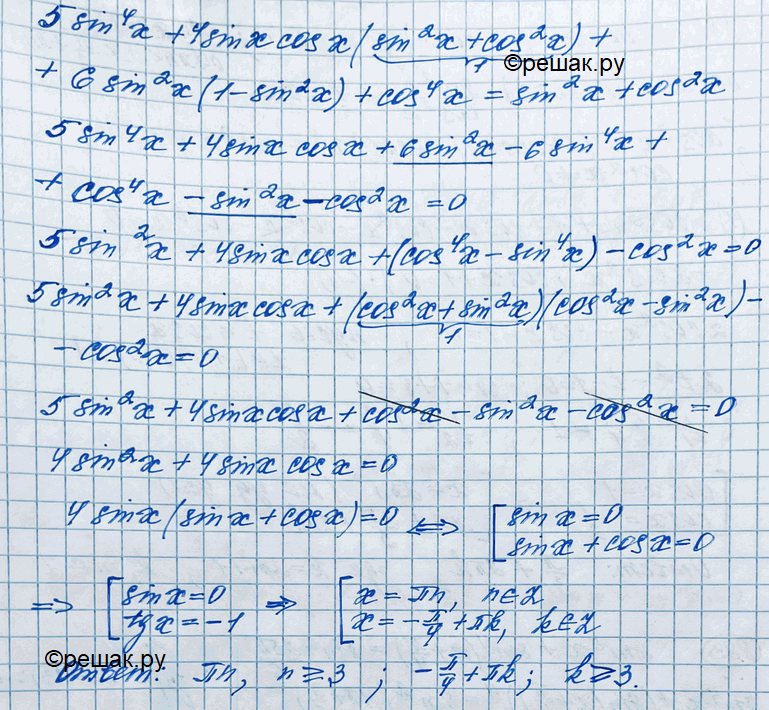 5 sin⁴x + 4 sin x cos x (sin²x + cos²x) +
1
©решак.ру
+ 6 sin²x (1 - sin²x) + cos⁴x = sin²x + cos²x
5 sin⁴x + 4 sin x cos x + 6 sin²x - 6 sin⁴x +
+ cos⁴x - sin²x - cos²x = 0
5 sin²x + 4 sin x cos x + (cos⁴x - sin⁴x) - cos²x = 0
5 sin²x + 4 sin x cos x + (cos²x + sin²x)(cos²x - sin²x) -
1
- cos²x = 0
5 sin²x + 4 sin x cos x + cos²x - sin²x - cos²x = 0
4 sin²x + 4 sin x cos x = 0
4 sin x (sin x + cos x) = 0 ⇔ [ sin x = 0
sin x + cos x = 0
⇒ [ sin x = 0 ⇒ [ x = πn, n ∈ Z
tg x = -1 x = -π/4 + πk, k ∈ Z
©решак.ру
Ответ: πn, n ⩾ 3 ; -π/4 + πk; k ⩾ 3.